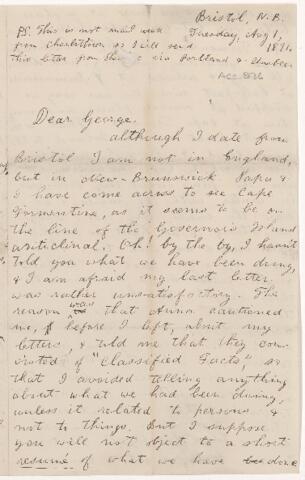 Bristol, N.B.
Tuesday, Aug 1,
1871.
P.S. This is not mail week
from Charlottown so I will send
this letter from via Portland &
Acc. 836
Dear George.
although I date from
Bristol I am not in England,
but in New-Brunswick Papa &
I have come across to see Cape
Tormentine, as it seems to be on
the line of the Governors Island
anticlinal. Oh! by the by, I havn't
told you what we have been doing,
& I am afraid my last letter
was rather unsatisfactory. The
reason was that Anna cautioned
me, before I left, about my
letters, & told me that they con-
sisted of "Classified Facts," so
that I avoided telling anything
about what we had been doing,
unless it related to persons &
not to things. But I suppose
you will not object to a short
resumé of what we have done